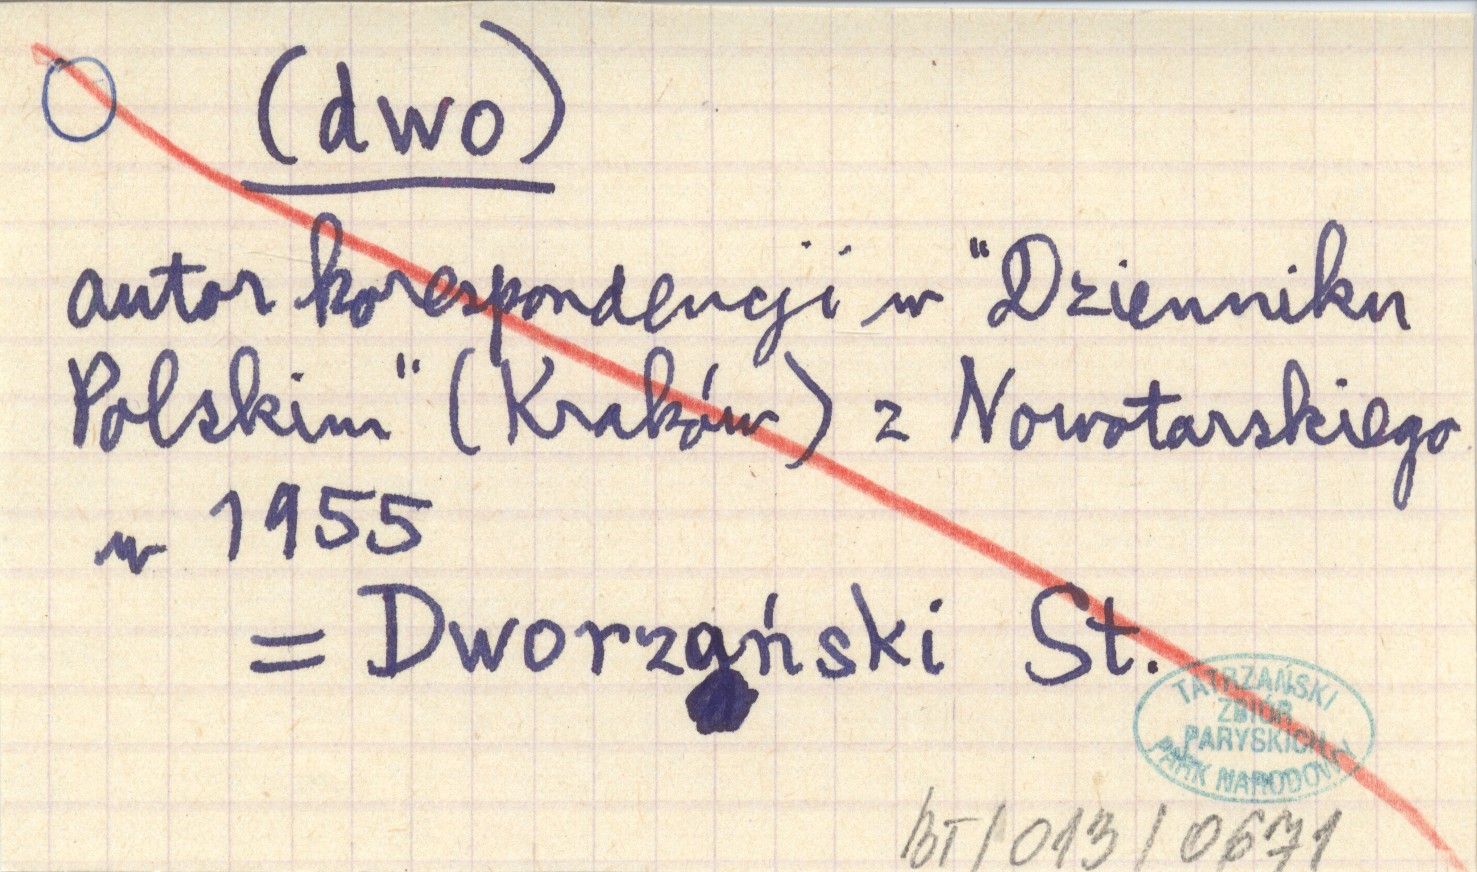 (dwo)
autor korespondencji w "Dzienniku
Polskim" (Kraków) z Nowotarskiego
w 1955
= Dworzański St.
TATRZAŃSKI
ZBIÓR
PARYSKICH
PARK NARODOWY
BT/013/0671